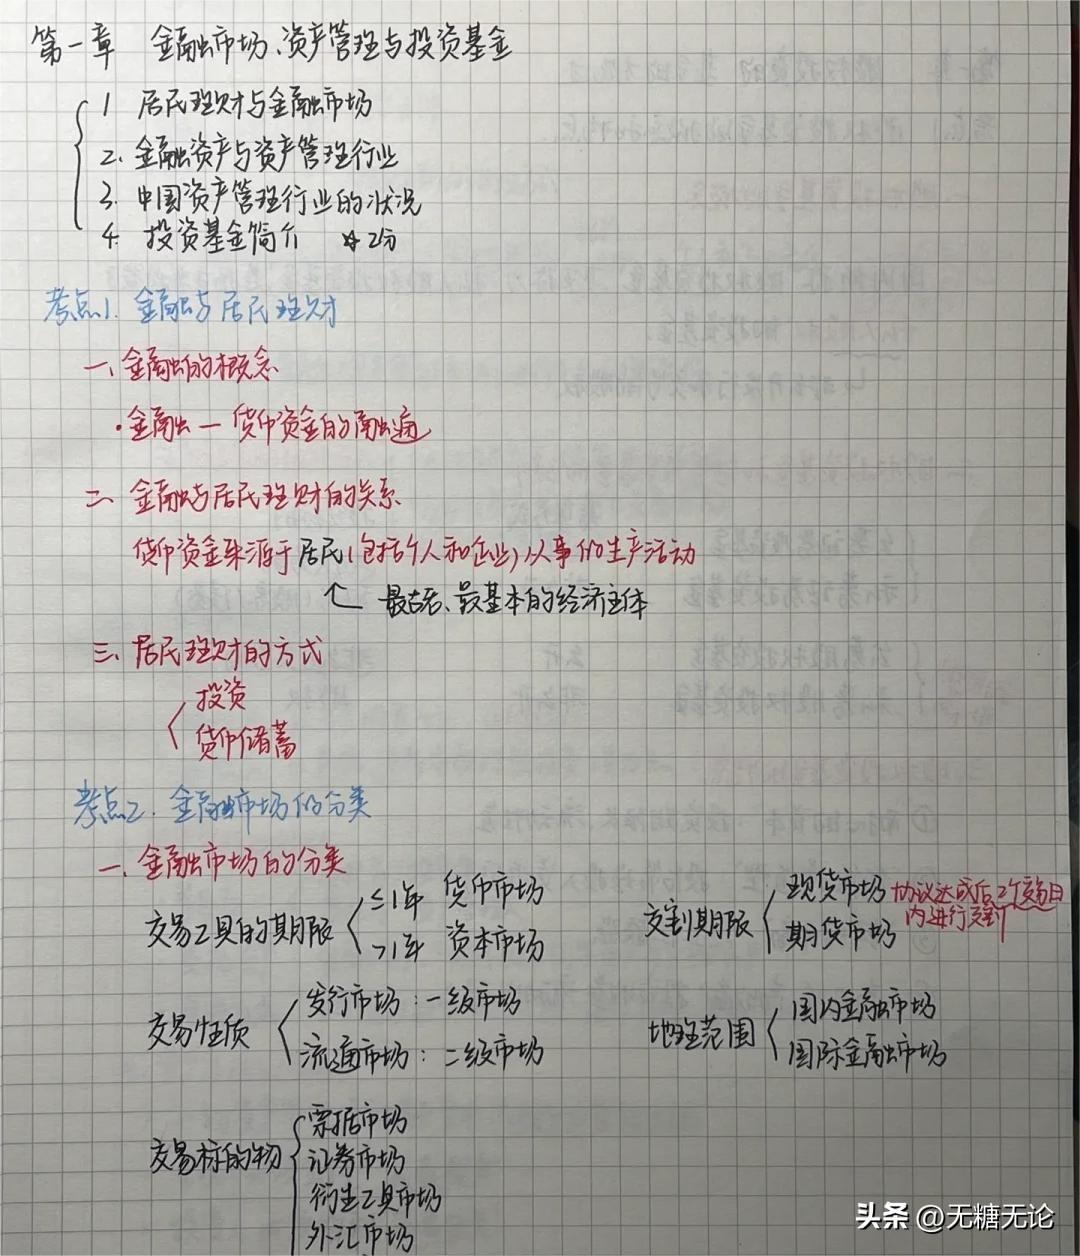 第一章 金融市场、资产管理与投资基金
1. 居民理财与金融市场
2. 金融资产与资产管理行业
3. 中国资产管理行业的状况
4. 投资基金简介 ☆2分
考点1. 金融与居民理财
一、金融的概念
·金融—货币资金的融通
二、金融与居民理财的关系
货币资金来源于居民(包括个人和企业)从事的生产活动
最古老、最基本的经济主体
三、居民理财的方式
投资
货币储蓄
考点2. 金融市场的分类
一、金融市场的分类
交易工具的期限
≤1年 货币市场
>1年 资本市场
交割期限
现货市场 协议达成后2个交易日
内进行交割
期货市场
交易性质
发行市场:一级市场
流通市场:二级市场
地理范围
国内金融市场
国际金融市场
交易标的物
票据市场
证券市场
衍生工具市场
外汇市场
头条 @无糖无论